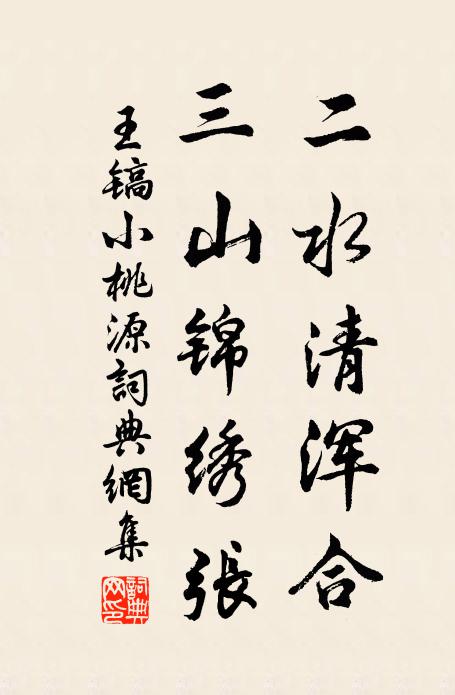 二水清浑合
三山锦绣張
王镐小桃源詞典網集
詞典网印